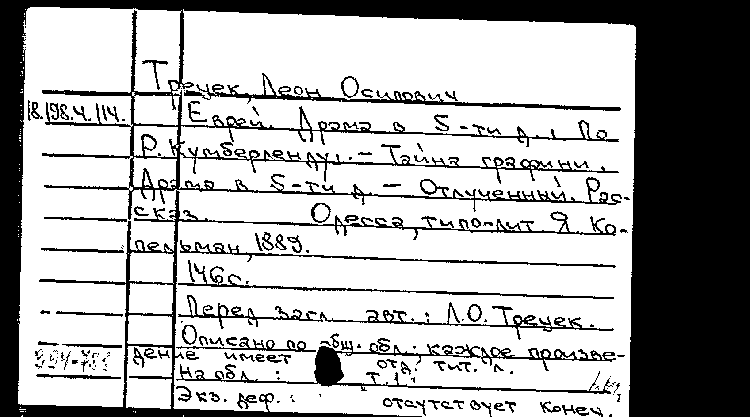 Трецек, Леон Осипович
18.198.4.114.
Еврей. Драма в 5-ти д., По
Р. Кумберленду. – Тайна графини.
Драма в 5-ти д. – Отлученный. Рас-
сказ. Одесса, типо-лит Я. Ко-
пельман, 1889.
146с.
Перед загл. авт.: Л.О. Трецек.
Описано по общ. обл.; каждое произве-
дение имеет отд. тит. л.
На обл.: Т.1.
Экз. деф.: отсутствует конец.